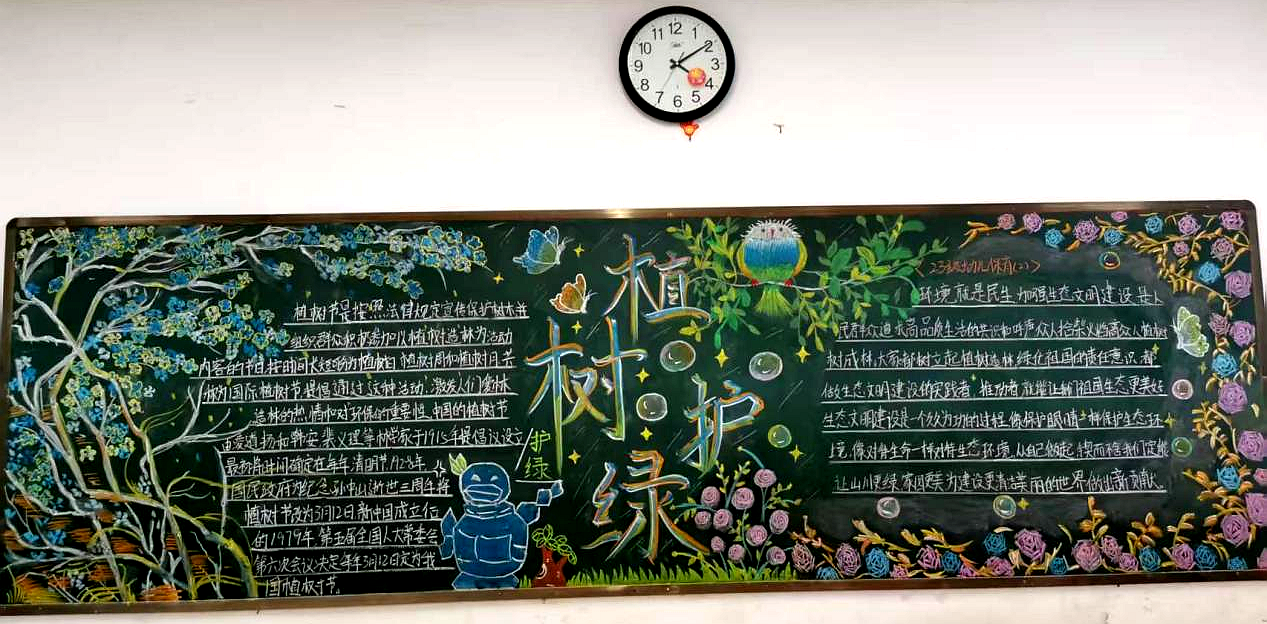 12
1
2
3
4
5
6
7
8
9
10
11
植树护绿
植树节是按照法律规定宣传保护树木并
组织群众积极参加以植树造林为活动
内容的节日按时间长短可分为植树日 植树周和植树月 共
称为国际植树节 提倡通过这种活动 激发人们爱林
造林的热情和对环保的重要性 中国的植树节
由凌道扬和韩安 裴义理等林学家于1915年提倡设立
最初将时间确定在每年清明节 1928年
国民政府为纪念孙中山逝世三周年将
植树节改为3月12日新中国成立后
的1979年 第五届全国人大常委会
第六次会议决定每年3月12日定为我
国植树节。
护绿
环境就是民生 加强生态文明建设是人
民群众追求高品质生活的共识和呼声众人拾柴火焰高众人植树
树成林大家都树立起植树造林绿化祖国的责任意识 都
做生态文明建设的实践者 推动者就能让我们祖国生态更美好
生态文明建设是一个久久为功的过程 像保护眼睛一样保护生态环
境 像对待生命一样对待生态环境 从自己做起
让山川更绿 家园更美为建设更清洁美丽的世界做出新贡献